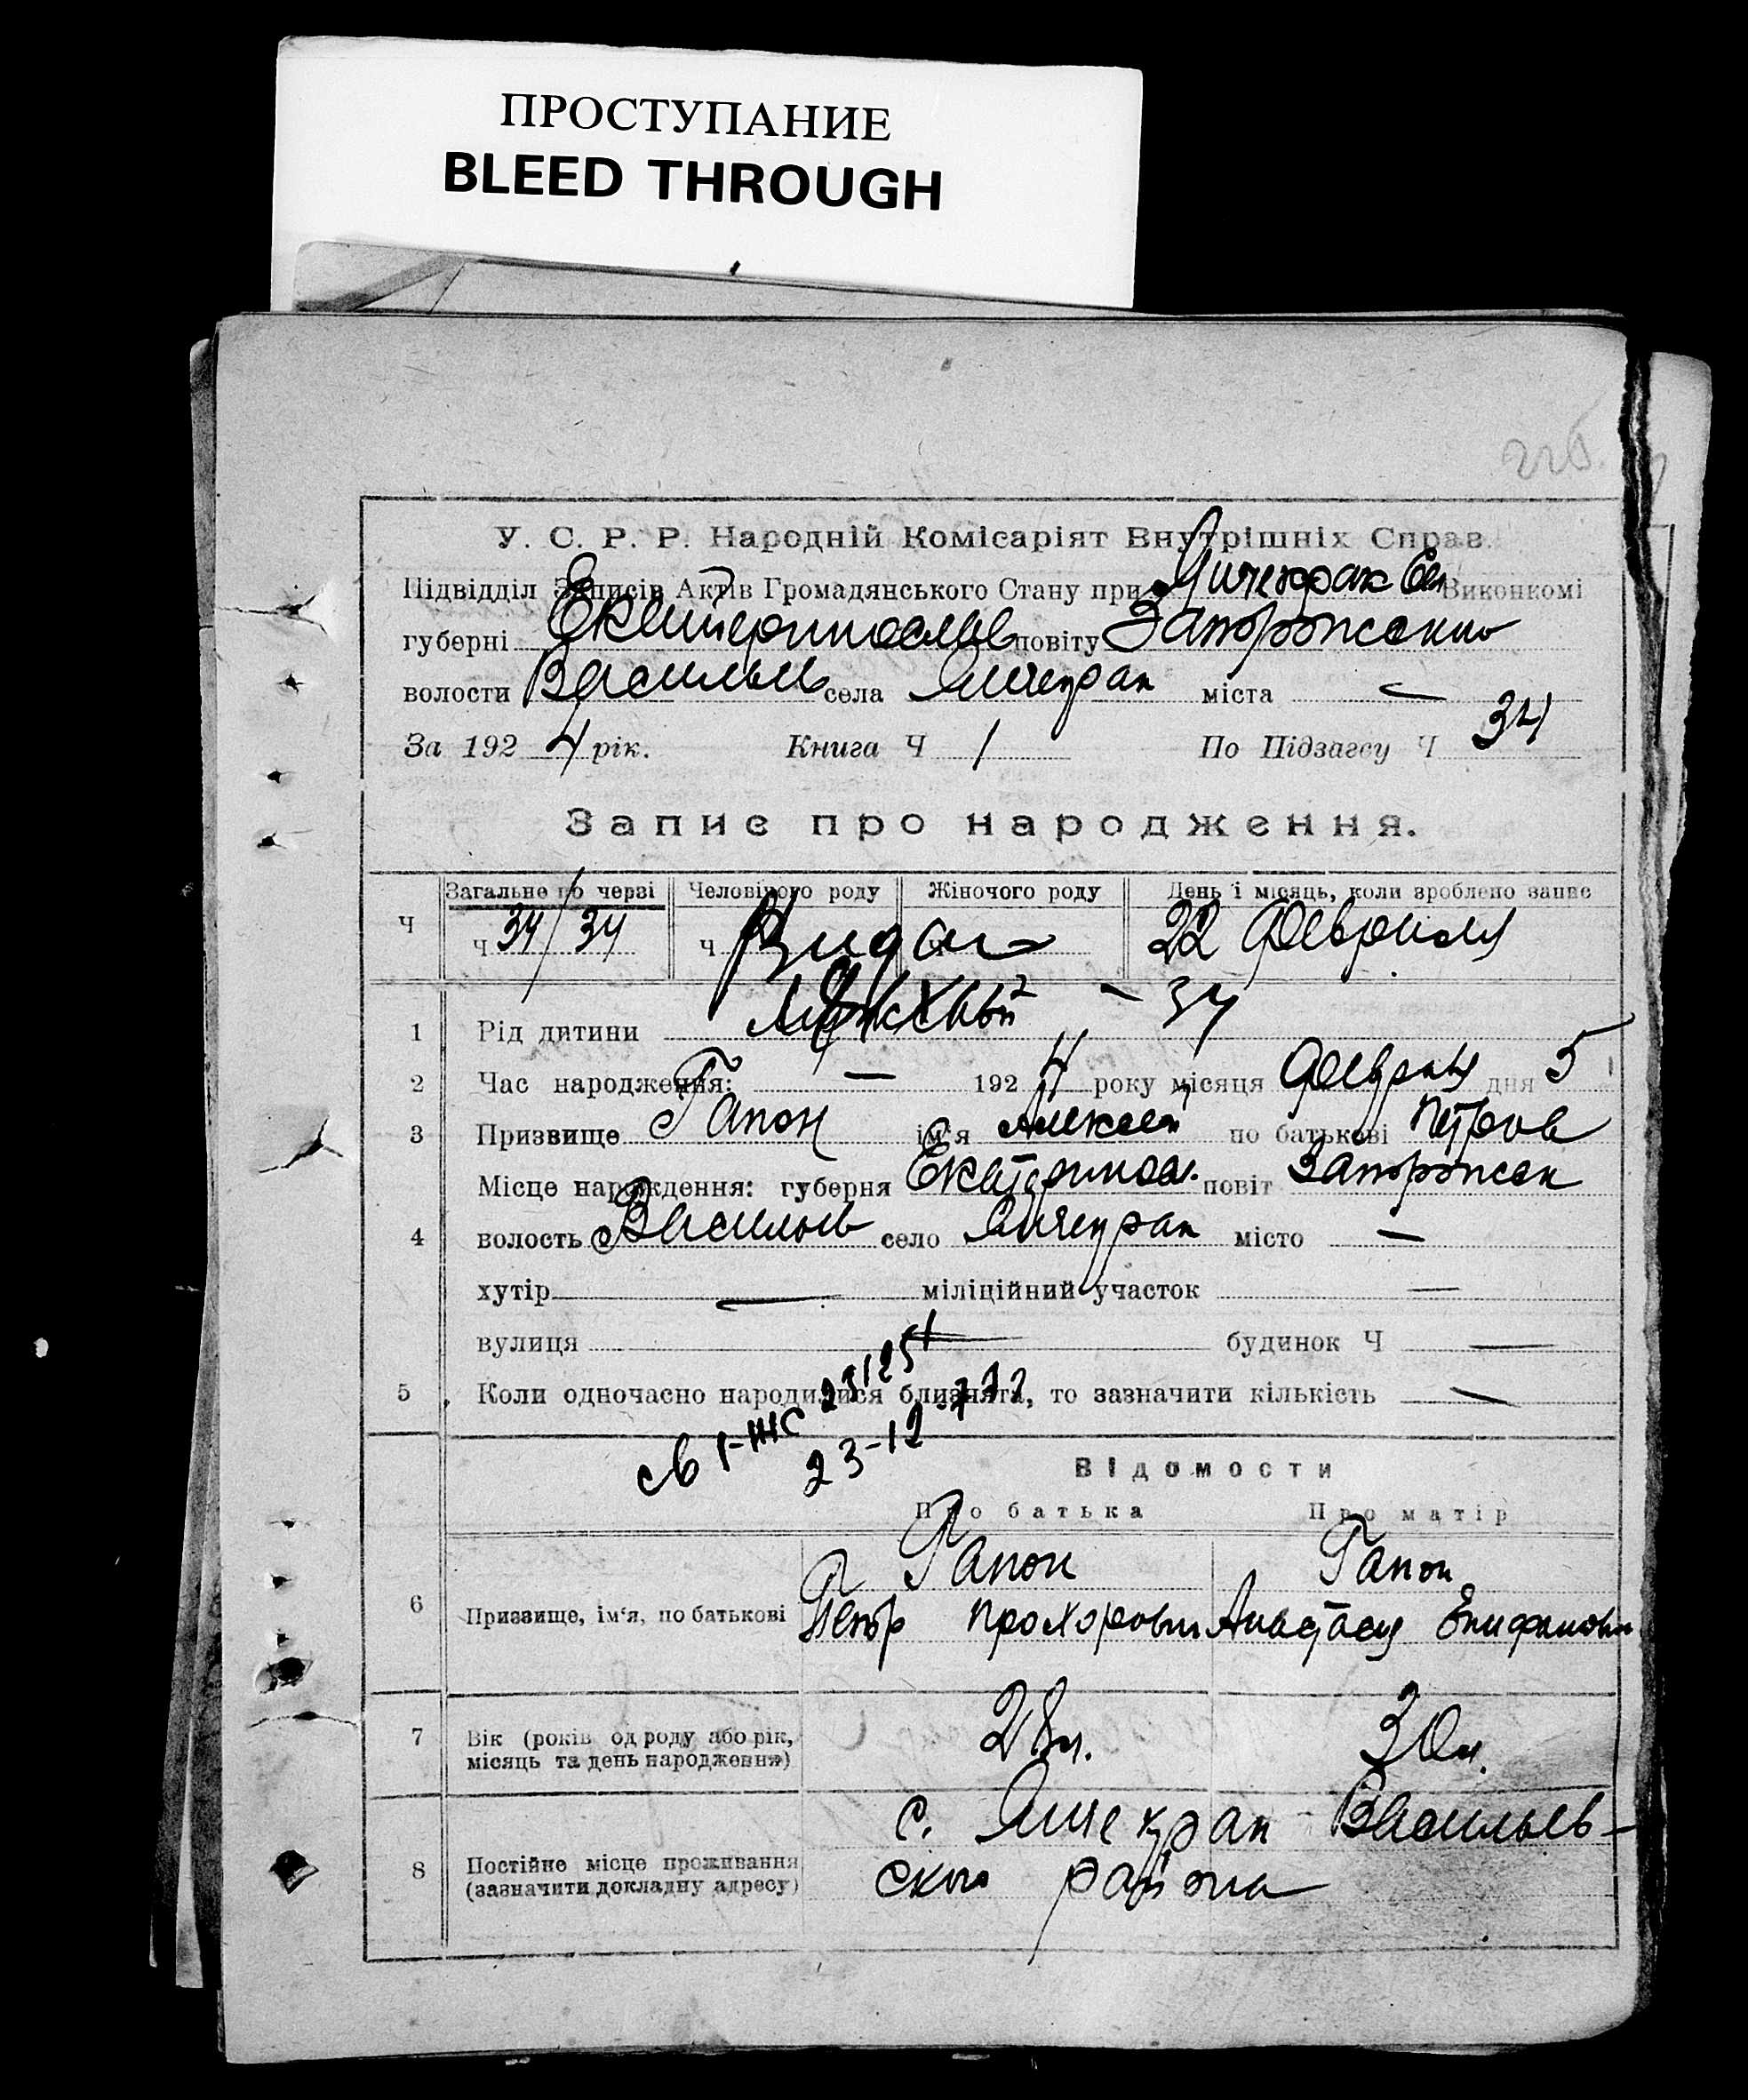 ПРОСТУПАНИЕ
BLEED THROUGH
У. С. Р. Р. Народній Комісаріят Внутрішніх Справ.
Підвідділ Записів Актів Громадянського Стану при Янчекрак Сел Виконкомі
губерні Екатеринослав повіту Запорожского
волости Васильев села Янчекрак міста —
За 192 4 рік. Книга Ч 1 По Підзагсу Ч 34
Запис про народження.
Ч Загальне по черзі Человічого роду Жіночого роду День і місяць, коли зроблено запис
Ч 34/34 Ч Ч 22 Февраля
1 Рід дитини Мужской — 34
2 Час народження: — 192 4 року місяця Февраля дня 5
3 Призвище Гапон ім'я Алексей по батькові Петров
Місце народження: губерня Екатеринос. повіт Запорожск
4 волость Васильев село Янчекрак місто —
хутір — міліційний участок —
вулиця — будинок Ч —
5 Коли одночасно народилися близнята, то зазначити кількість —
св I-ЖС
23-12-777
Відомости
Про батька Про матір
Гапон Гапон
6 Призвище, ім'я, по батькові Петр Прохорович Анастасия Епифановн
7 Вік (років од роду або рік, 28 л. 30 л.
місяць та день народження)
с. Янчекрак Васильев-
8 Постійне місце проживання ского района
(зазначити докладну адресу)